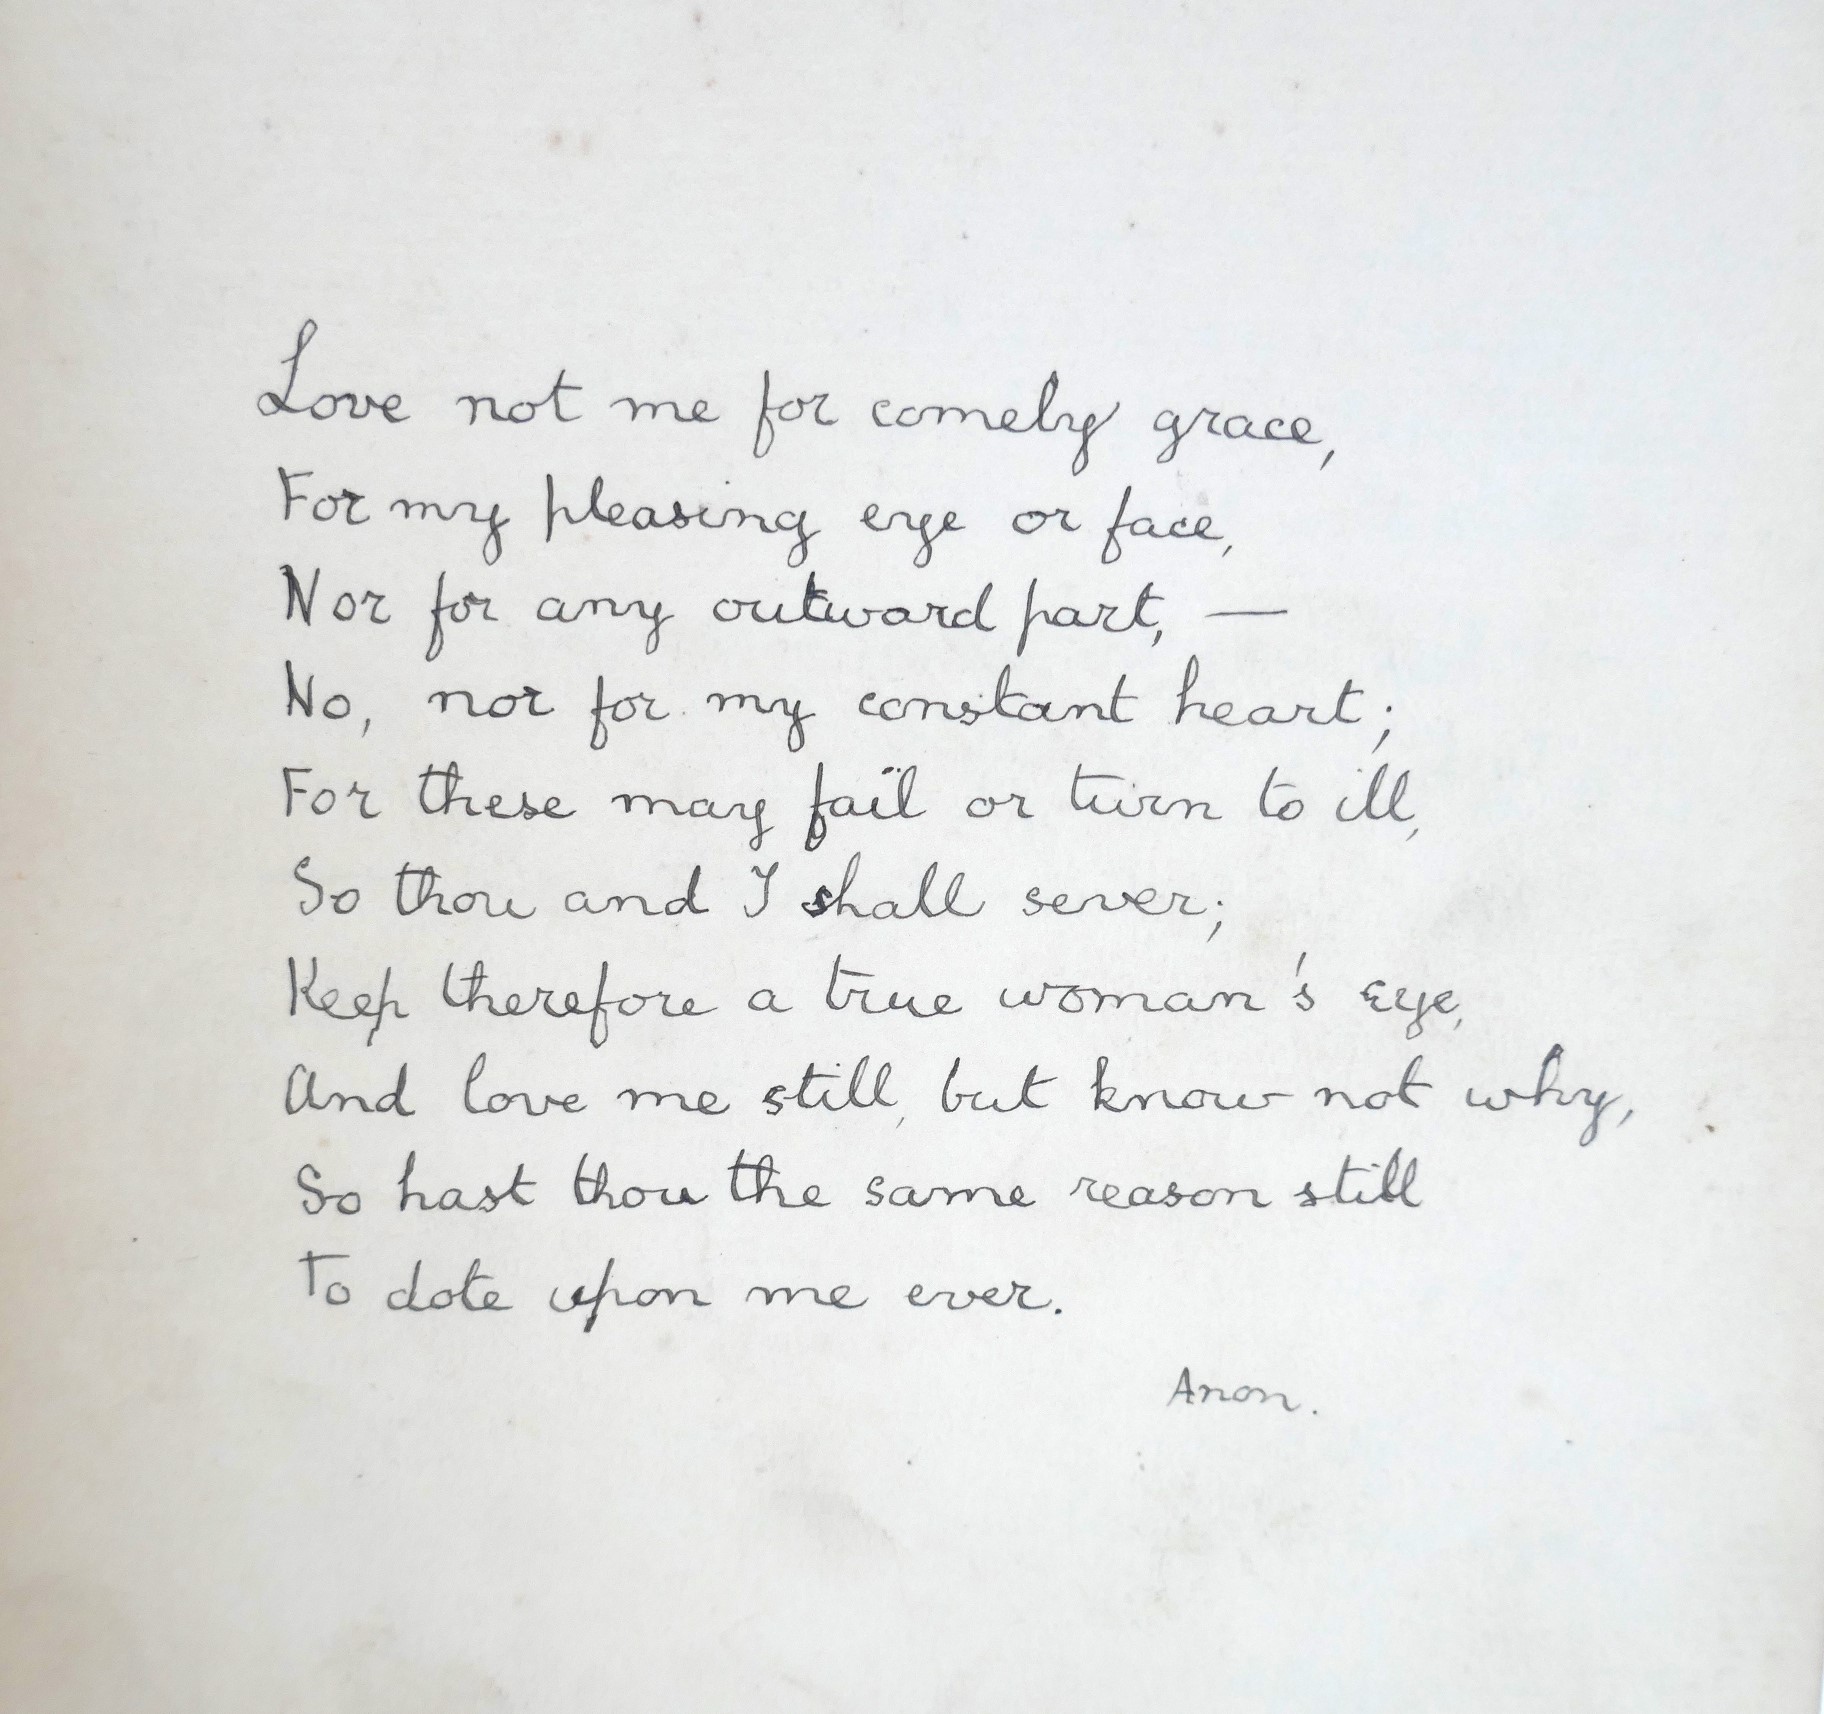 Love not me for comely grace,
For my pleasing eye or face,
Nor for any outward part, —
No, nor for my constant heart;
For these may fail or turn to ill,
So thou and I shall sever;
Keep therefore a true woman's eye,
And love me still, but know not why,
So hast thou the same reason still
To dote upon me ever.
Anon.